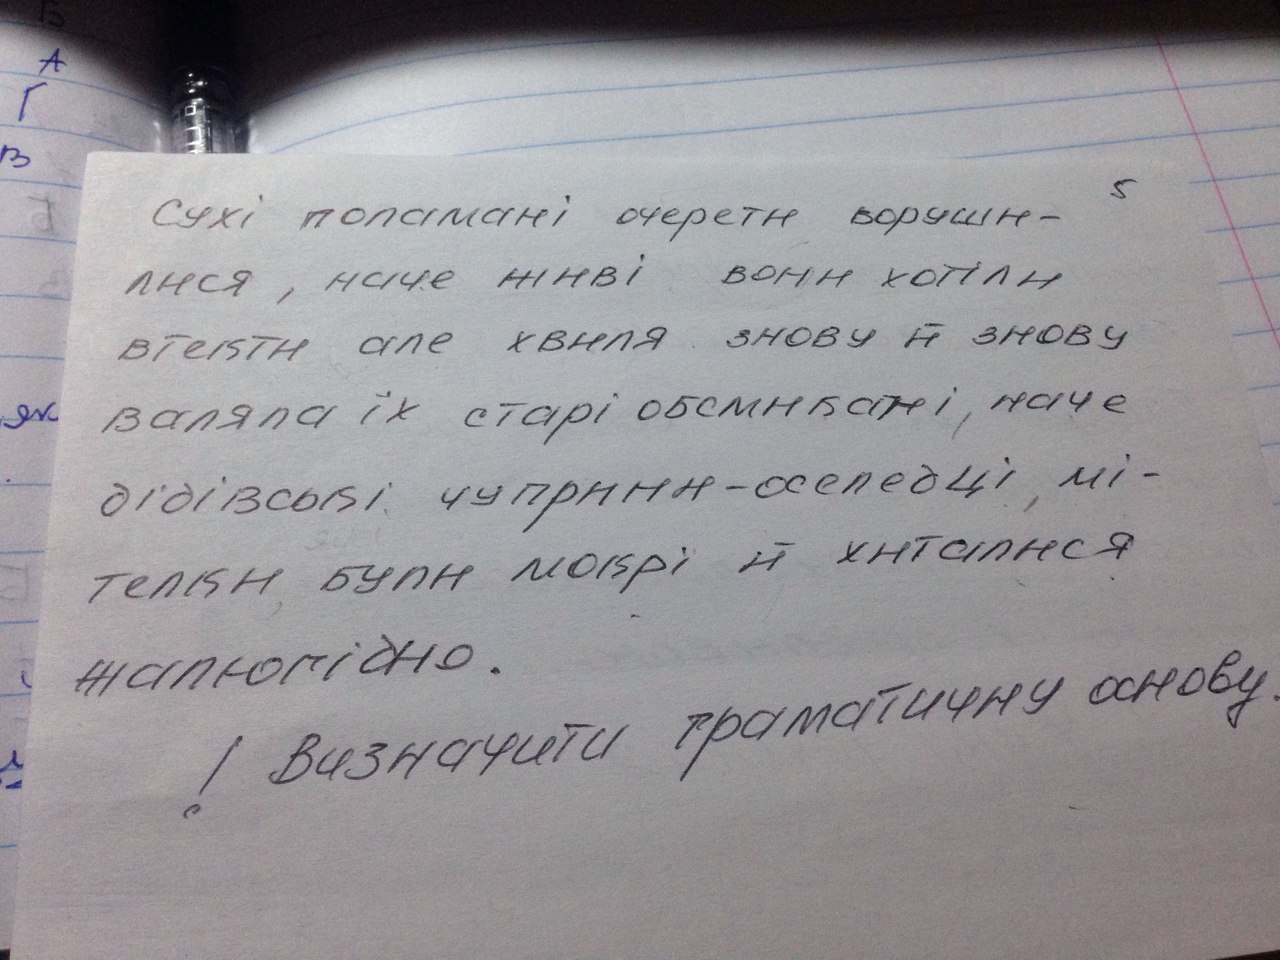 Б
А
Г
В
5
Сухі поламані очерети воруши-
лися, наче живі вони хотіли
втекти але хвиля знову й знову
валяла їх старі обсмикані, наче
дідівські чуприни-оселедці, мі-
телки були мокрі й хиталися
жалюгідно.
! Визначити граматичну основу.
як